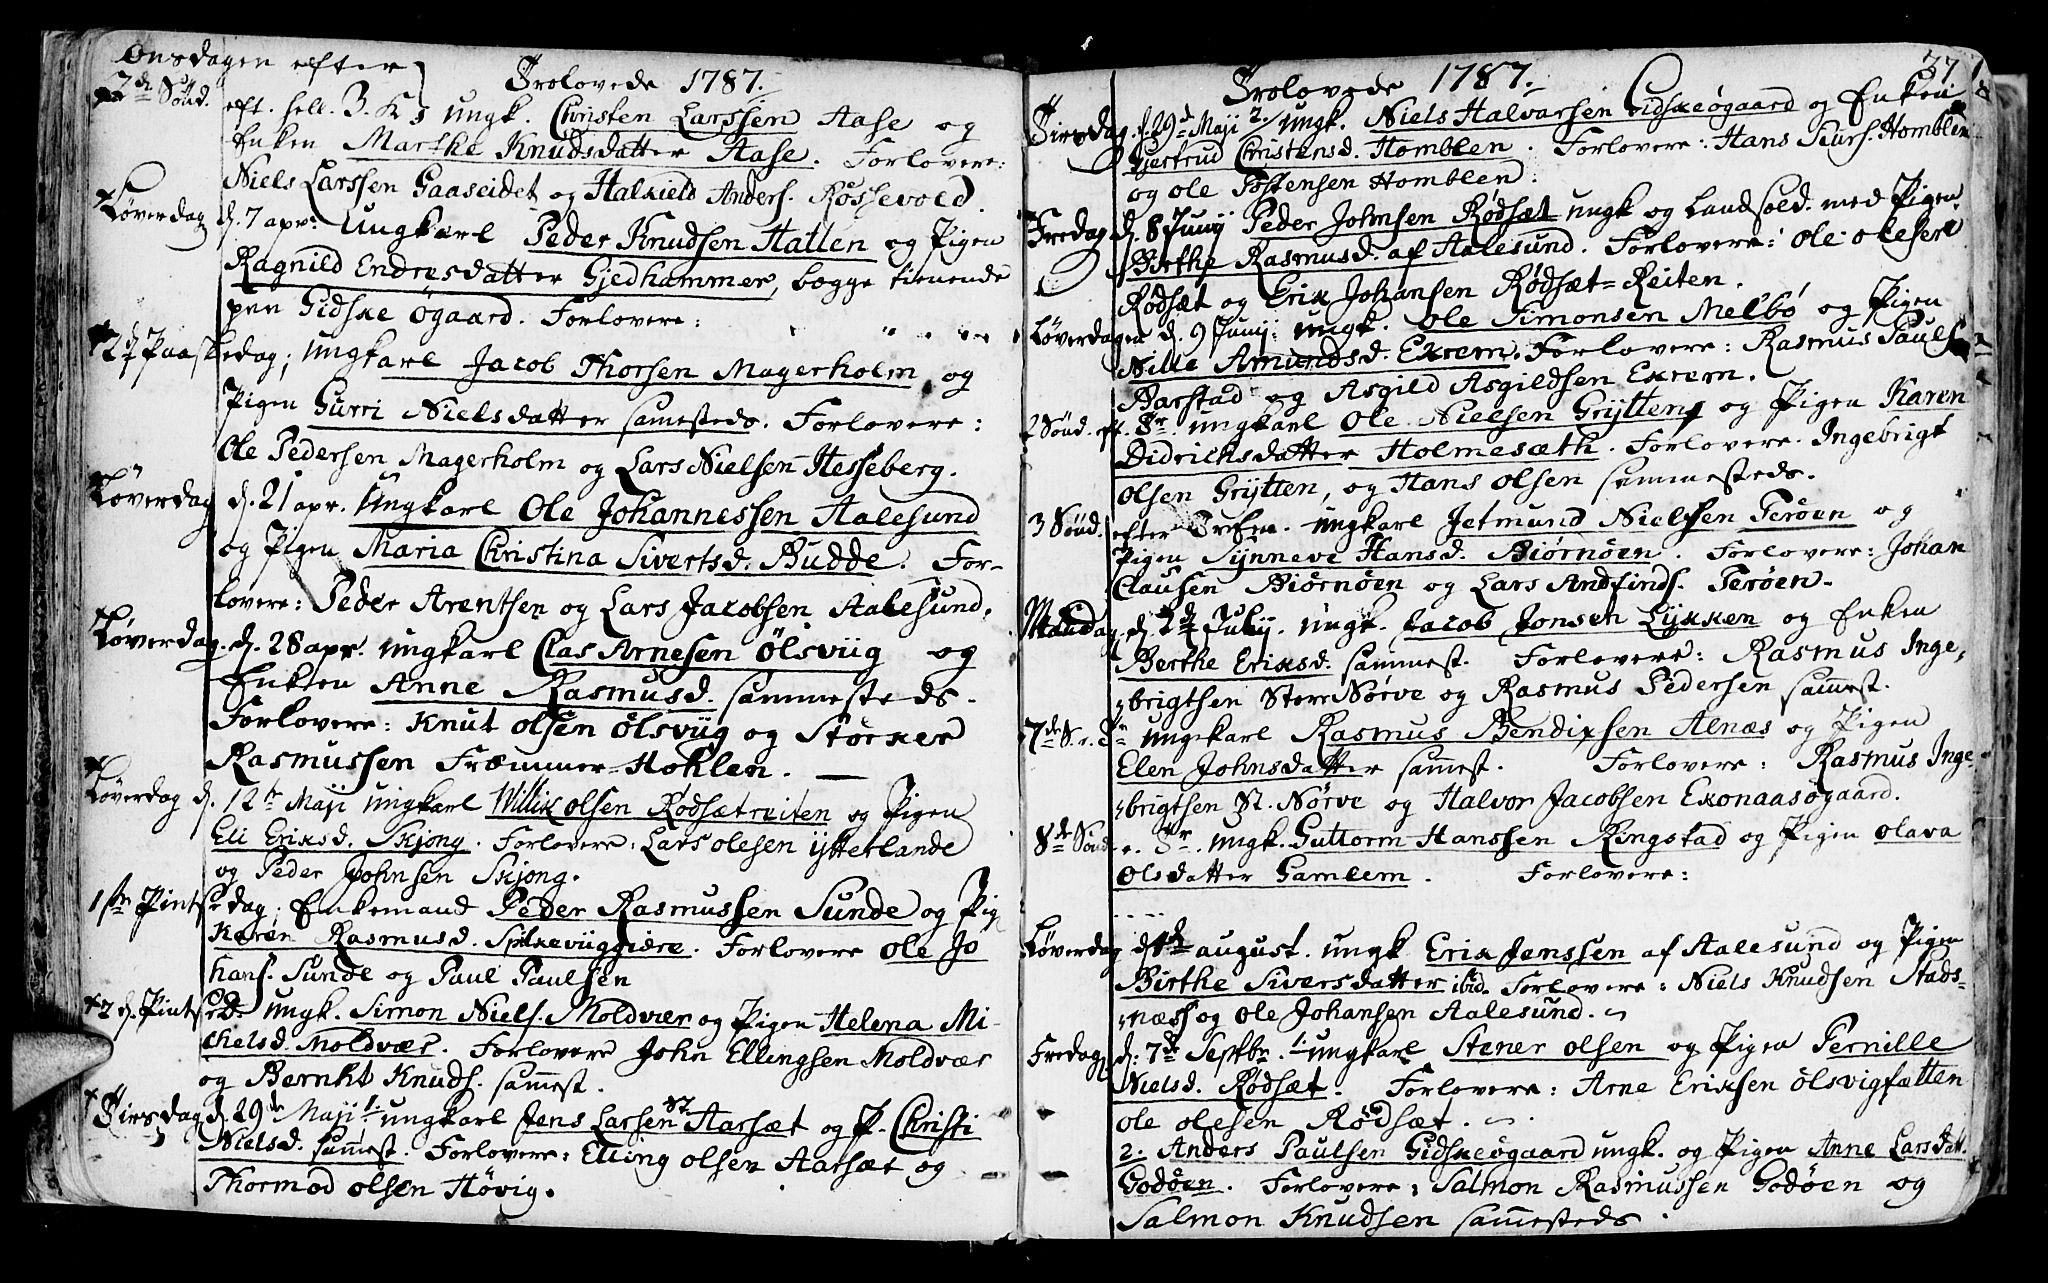 onsdagen efter
Trolovede 1787.
2de Sönd. eft. hell. 3. K. ungk. Christen Larssen Aase og
Enken Marthe Knudsdatter Aase. Forlovere:
Niels Larssen Gaaseidet og Halkield Anders. Røssevold.
Løverdag d. 7 apr: Ungkarl Peder Knudsen Hatlen og Pigen
Ragnild Endresdatter Gjedhammer, begge tienende
paa Gidske Øgaard. Forlovere:
2d. Paaskedag; Ungkarl Jacob Thorsen Magerholm og
Pigen Gurri Nielsdatter samesteds. Forlovere:
Ole Pedersen Magerholm og Lars Nielsen Hesseberg.
Løverdag d. 21 apr. Ungkarl Ole Johannessen Aalesund
og Pigen Maria Christina Sivertsd. Budde. For-
lovere: Peder Arentsen og Lars Jacobsen Aalesund.
Løverdag d. 28 apr. ungkarl Clas Arnesen Ølsviig og
Enken Anne Rasmusd. sammesteds.
Forlovere: Knut olsen Ølsviig og Størker
Rasmussen Fræmmer-Hohlen.
Løverdag d. 12te Maji ungkarl Willik olsen Rødsætreiten og Pigen
Eli Eriksd. Skjong. Forlovere: Lars olesen ytterlande
og Peder Johnsen Skjong.
1ste Pintsedag; Enkemand Peder Rasmussen Sunde og Pig
Karen Rasmusd. Spikeviiggiære. Forlovere Ole Jo
hans. Sunde og Paul Paulsen
2d. Pintsed. ungk. Simon Niels. Moldvær og Pigen Helena Mi-
chelsd. Moldvær. Forlovere John Ellingsen Moldvær
og Bernht Knuds. samest.
Tirsdag d. 29de Maji 1. ungkarl Jens Larsen Aarsæt og P. Christi
Nielsd. samest. Forlovere: Elling olsen Aarsæt og
Thormod olsen Høvig.
37
Trolovede 1787.
Tirsdag d. 29d Maji 2. ungk. Niels Halvarsen Gidskeøgaard og Enken
Gjertrud Christensd. Homblen. Forlovere: Hans Siurs. Homblen
og ole Postensen Homblen.
Fredag d. 8 Junij Peder Johnsen Rødsæt ungk og Landsold. med Pigen
Birthe Rasmusd. af Aalesund. Forlovere: Ole olesen
Rødsæt og Erik Johansen Rødsæt-Reiten.
Løverdagen d. 9 Junij. ungk. Ole Simonsen Melbö og Pigen
Nille Amundsd. Exrem. Forlovere: Rasmus Pauls
Barstad og Asgild Asgildsen Exrem.
2 Sönd. eft. Tr. ungkarl Ole Nielsen Grytten og Pigen Karen
Didrichsdatter Holmesæth. Forlovere. Ingebrigt
olsen Grytten, og Hans olsen sammesteds.
3 Sönd. efter Trefn. ungkarl Jetmund Nielsen Perøen og
Pigen Synneve Hansd. Biørnøen. Forlovere: Johan
Clausen Biørnøen og Lars Andfinds. Perøen.
Mandag d. 2d Julij. ungk. Jacob Jonsen Lykken og Enken
Berthe Eriksd. sammest. Forlovere: Rasmus Inge-
brigtsen Store Nørve og Rasmus Pedersen samest.
7de S. e. Tr. ungkarl Rasmus Bendixsen Alnæs og Pigen
Elen Johnsdatter samest. Forlovere: Rasmus Inge-
brigtsen St. Nørve og Halvor Jacobsen Exonaasøgaard.
8de Sönd. e. Tr. ungk. Guttorm Hanssen Ringstad og Pigen olava
Olsdatter Gamlem. Forlovere:
Løverdag d. august. ungk Erik Jenssen af Aalesund og Pigen
Birthe Siversdatter ibid. Forlovere: Niels Knudsen Stads-
næss og ole Johansen Aalesund.
Fredag d. 7de Septbr. 1. ungkarl Stener olsen og Pigen Pernille
Nielsd. Rødsæt. Forlovere: Arne Eriksen ølsvigfætten
ole olesen Rødsæt.
2. Anders Paulsen Gidskeøgaard ungk. og Pigen Anne Larsdatt.
Godøen. Forlovere: Salmon Rasmussen Godøen og
Salmon Knudsen sammesteds.